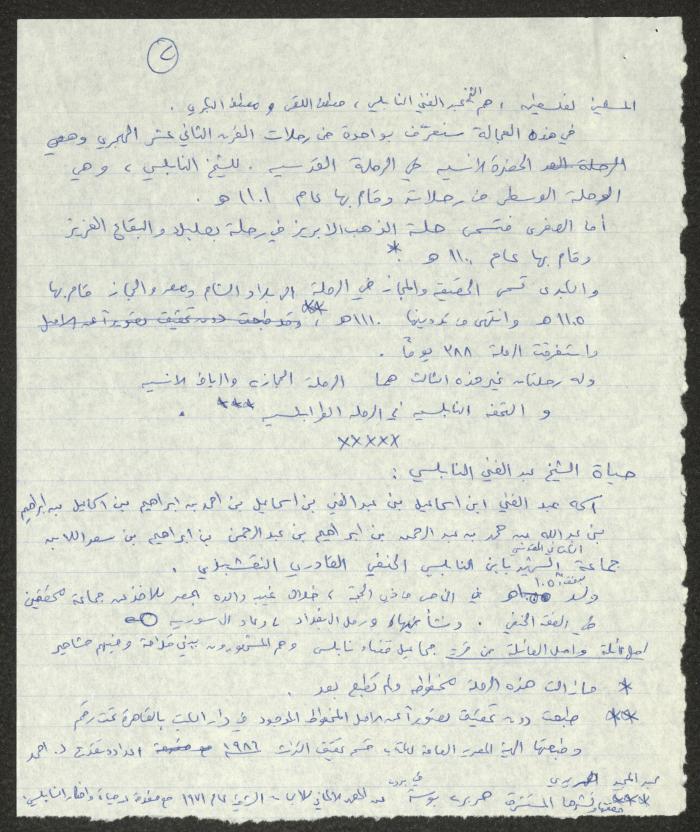 ٢
لفلسطين، هم الشيخ عبد الغني النابلسي، مصطفى اللقيمي و مصطفى البكري.
في هذه العجالة سنعرّف بواحدة من رحلات القرن الثاني عشر الهجري وهي
الحضرة الانسية في الرحلة القدسية. للشيخ النابلسي، وهي
الرحلة الوسطى من رحلاته وقام بها عام ١١٠١ هـ.
أما الصغرى فتسمى حلة الذهب الابريز في رحلة بعلبك والبقاع العزيز
وقام بها عام ١١٠٠ هـ *.
والكبرى تسمى الحقيقة والمجاز في الرحلة الى بلاد الشام ومصر والحجاز قام بها
١١٠٥ هـ وانتهى من تدوينها ١١١٠ هـ ** وقد طبعت دون تحقيق مصورة عن الاصل
واستغرقت الرحلة ٣٨٨ يوماً.
وله رحلتان غير هذه الثلاث هما الرحلة الحجازية والرياض الانسية
و التحفة النابلسية في الرحلة الطرابلسية ***.
×××××
حياة الشيخ عبد الغني النابلسي:
عبد الغني ابن اسماعيل بن عبد الغني بن اسماعيل بن احمد بن ابراهيم بن اسماعيل بن ابراهيم
بن عبد الله بن محمد بن عبد الرحمن بن ابراهيم بن عبد الرحمن بن ابراهيم بن سعد الله بن
جماعة الشهير بابن النابلسي الحنفي القادري النقشبندي.
ولد ١٠٥٠ هـ في الخامس من ذي الحجة، خلال غياب والده بمصر للاخذ عن جماعة محققين
في الفقه الحنفي. ونشأ ورحل الى بغداد وعاد الى سورية
واصل العائلة من قرية جماعيل قضاء نابلس وهم المشهورون ببني قدامة وفيهم مشاهير
* ما زالت هذه الرحلة مخطوطة ولم تطبع بعد.
** طبعت دون تحقيق مصورة عن الاصل المخطوط الموجود في دار الكتب بالقاهرة تحت رقم
وطبعتها الهيئة المصرية العامة للكتاب قسم تحقيق التراث ١٩٨٦ اعداد وتقديم د. احمد
عبد المجيد الهريدي
*** حققها ونشرها المستشرق هربرت بوسة في بيروت عن المعهد الالماني للابحاث الشرقية عام ١٩٧١ مع مقدمة لحياة وافكار النابلسي.